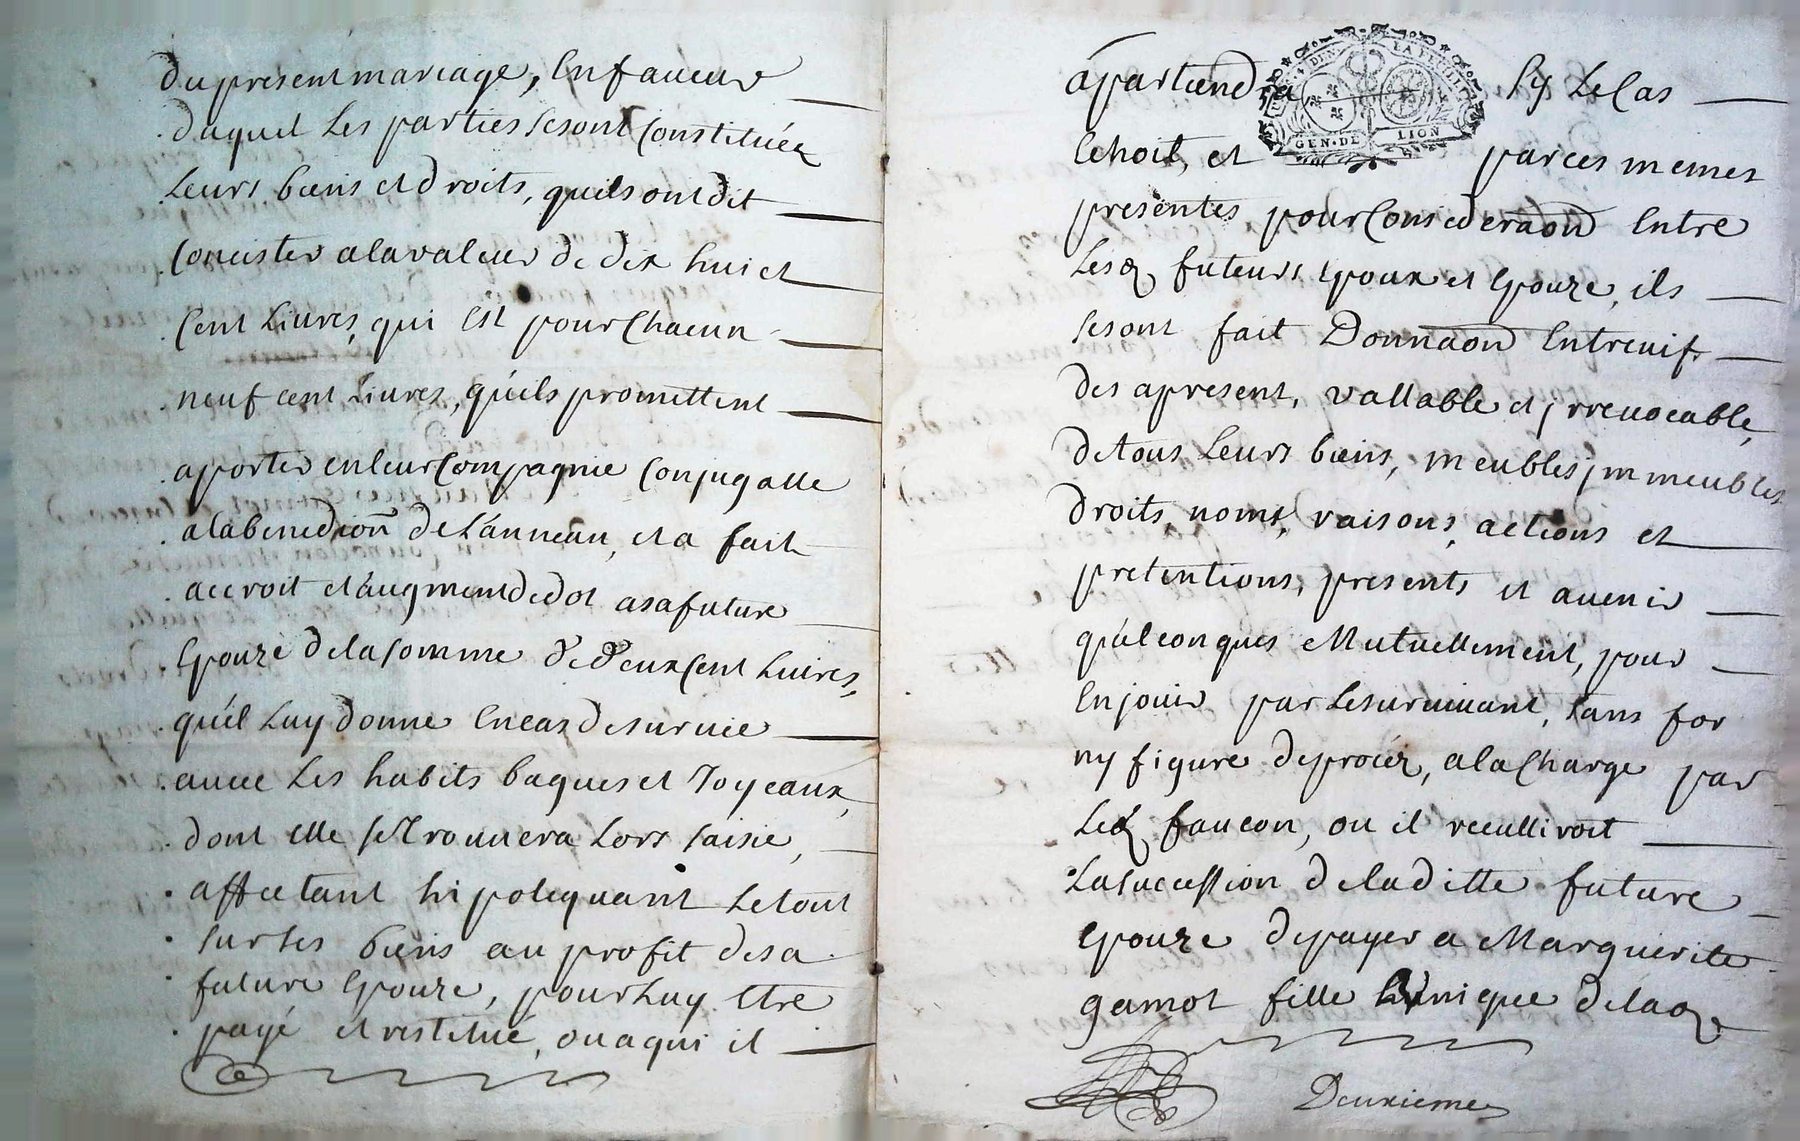 du present mariage, en faueur
duquel les parties se sont constituées
leurs biens et droits, quils ont dit
concister a la valeur de dix huict
cent Liures, qui est pour chacun
neuf cent Liures, quils promettent
aporter en leur compagnie conjugalle
a la benediôn de l'anneau, et a fait
accroit et augment de dot a sa future
epouze de la somme de deux cent Livres,
qu'il luy donne en cas de survie
auec les habits bagues et Joyeaux,
dont elle se trouuera lors saisie,
affectant hipotequant le tout
sur ses biens au profit de sa
future epouze, pour luy etre
payé et restitué, ou a qui il
apartiendra sy le cas
GEN. DE LION
echoit, et par ces memes
presentes, pour consideraôn entre
lesd futeurs epoux et epouze, ils
se sont fait Donnaôn entreuifs
des apresent, vallable et jrreuocable,
de tous leurs biens, meubles jmmeubles
droits, noms, raisons, actions et
pretentions, presents et auenir
quelconques Mutuellement, pour
en jouir par le suruiuant, sans for
ny figure de procéz, a la charge par
led faucon, ou il recullliroit
la succession de la ditte future
epouze de payer a Marguerite
gamot fille unique de lad
Deuxieme